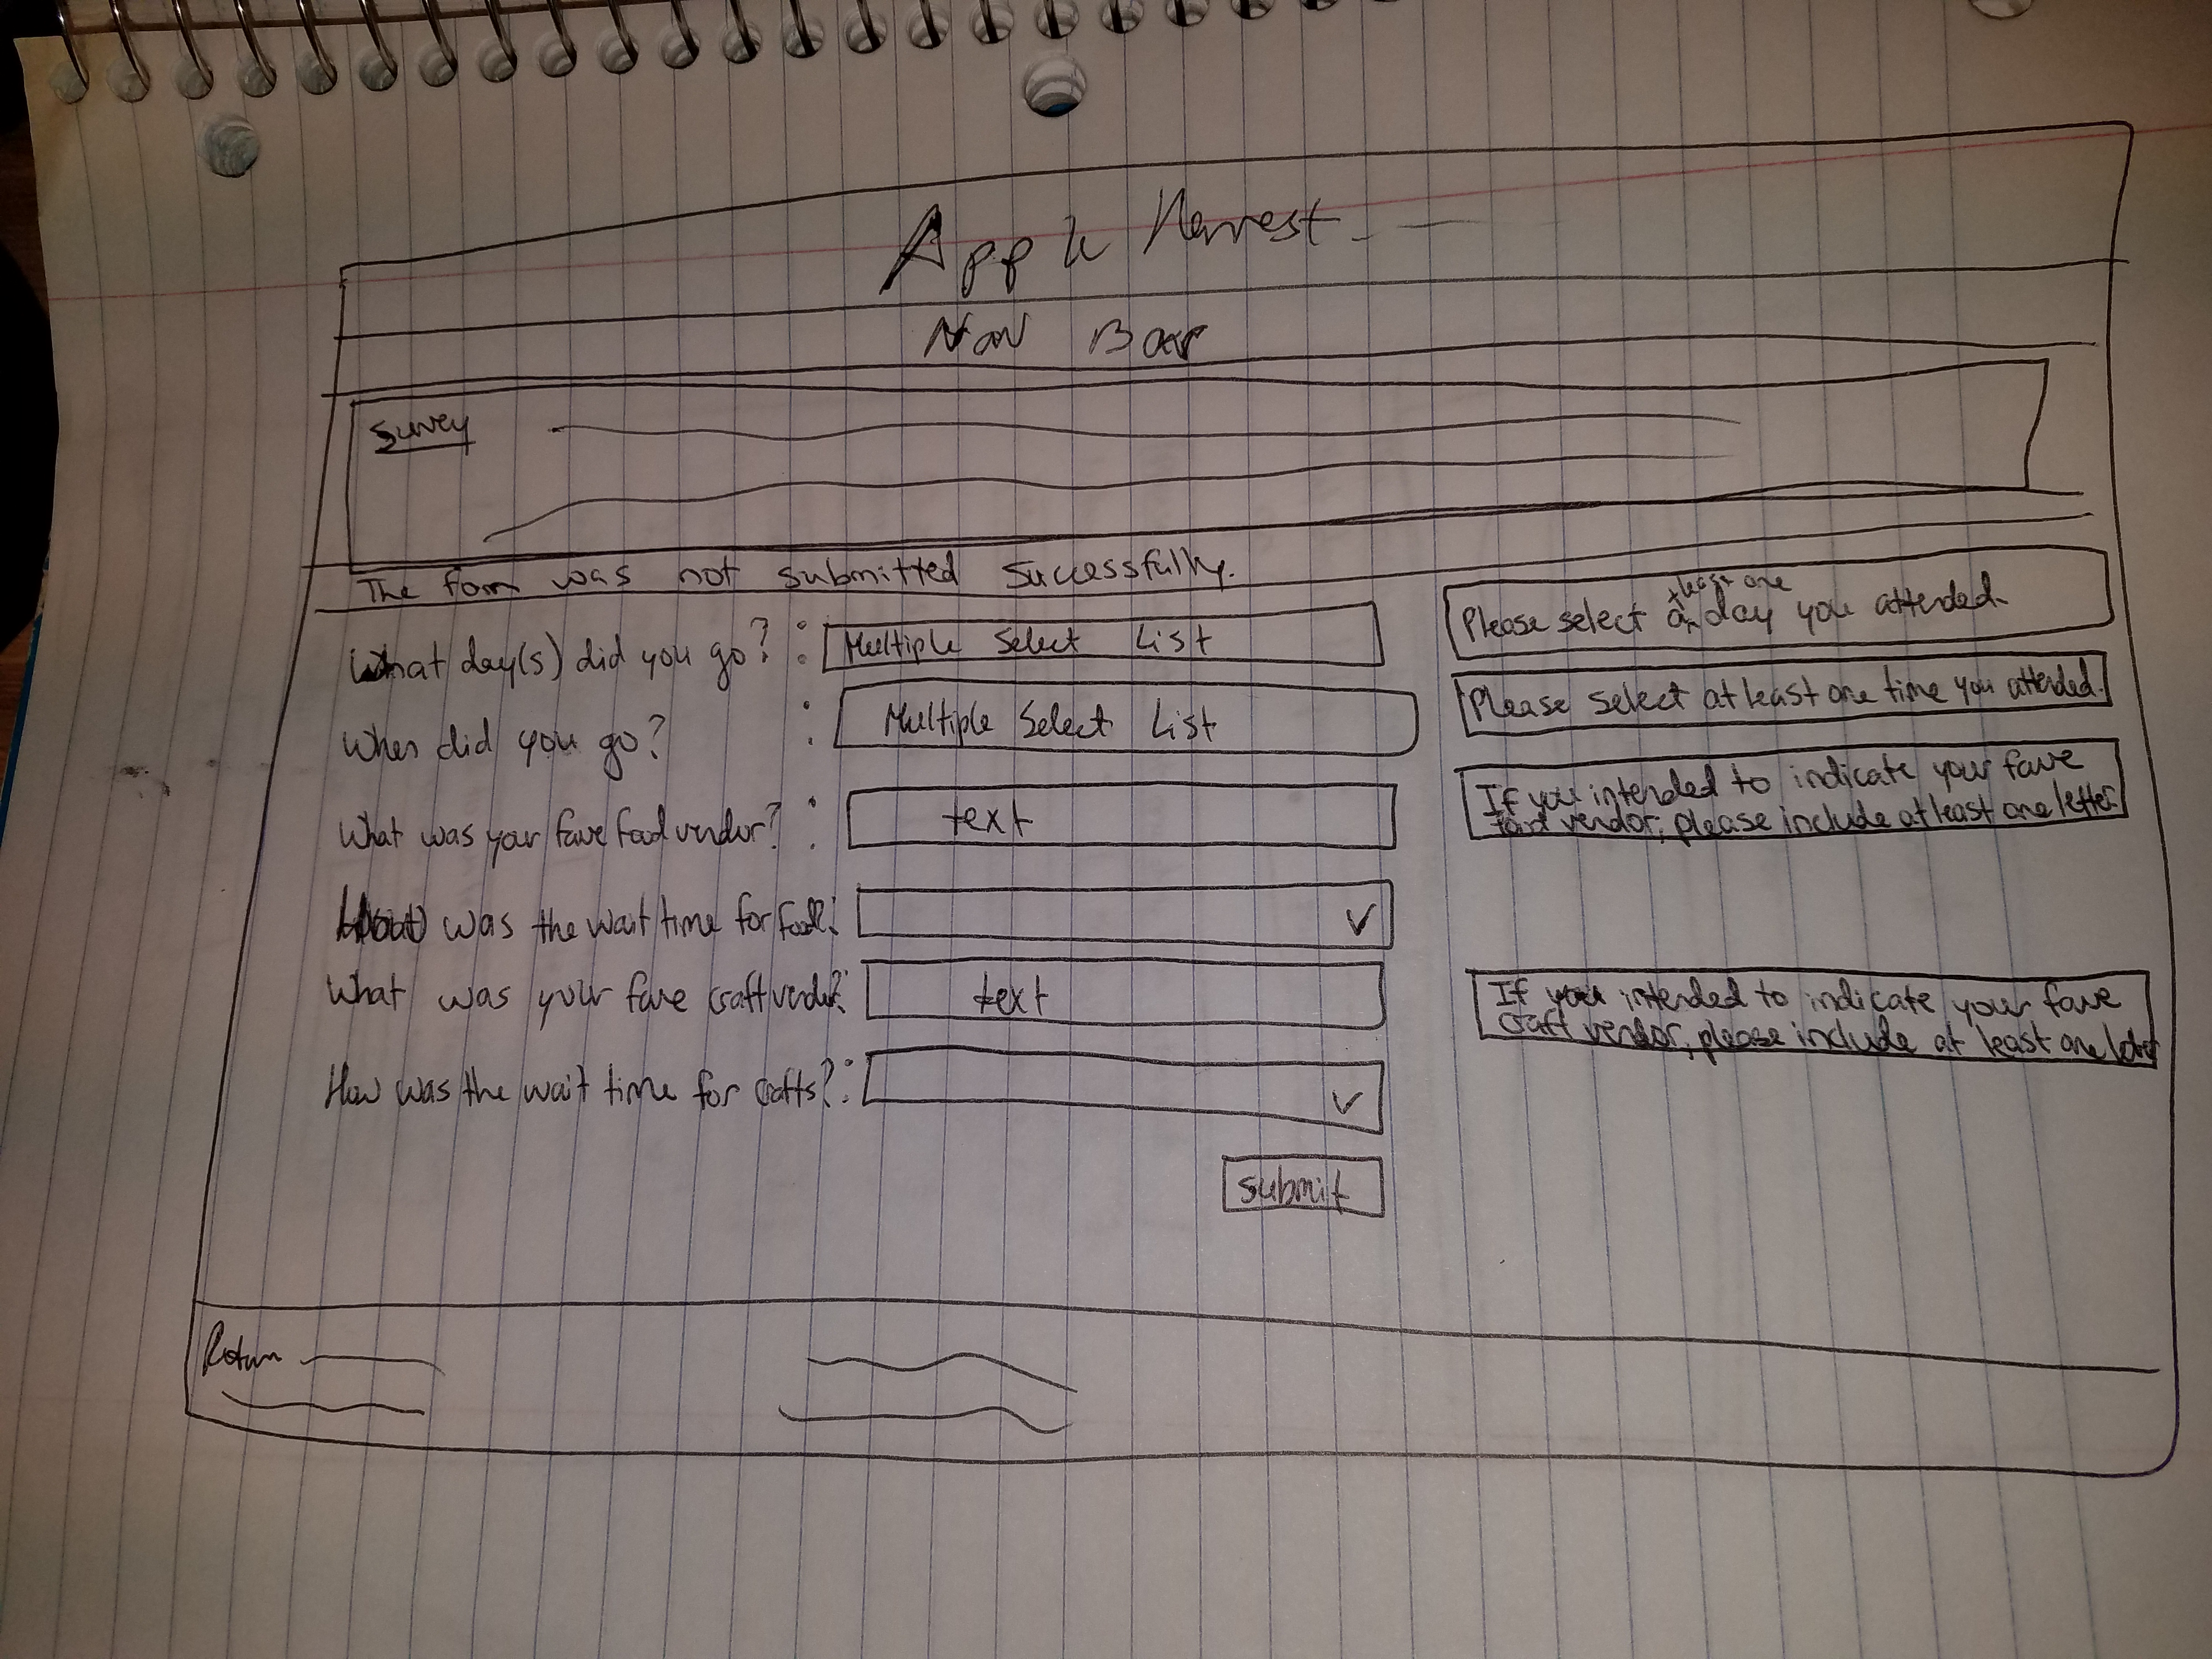 Apple Harvest
Nav Bar
Survey
The form was not submitted successfully.
What day(s) did you go? :
Multiple Select List
Please select at least one day you attended.
When did you go? :
Multiple Select List
Please select at least one time you attended.
What was your fave food vendor? :
text
If you intended to indicate your fave
food vendor, please include at least one letter.
was the wait time for food? :
What was your fave craft vendor? :
text
If you intended to indicate your fave
craft vendor, please include at least one letter
How was the wait time for crafts? :
submit
Return